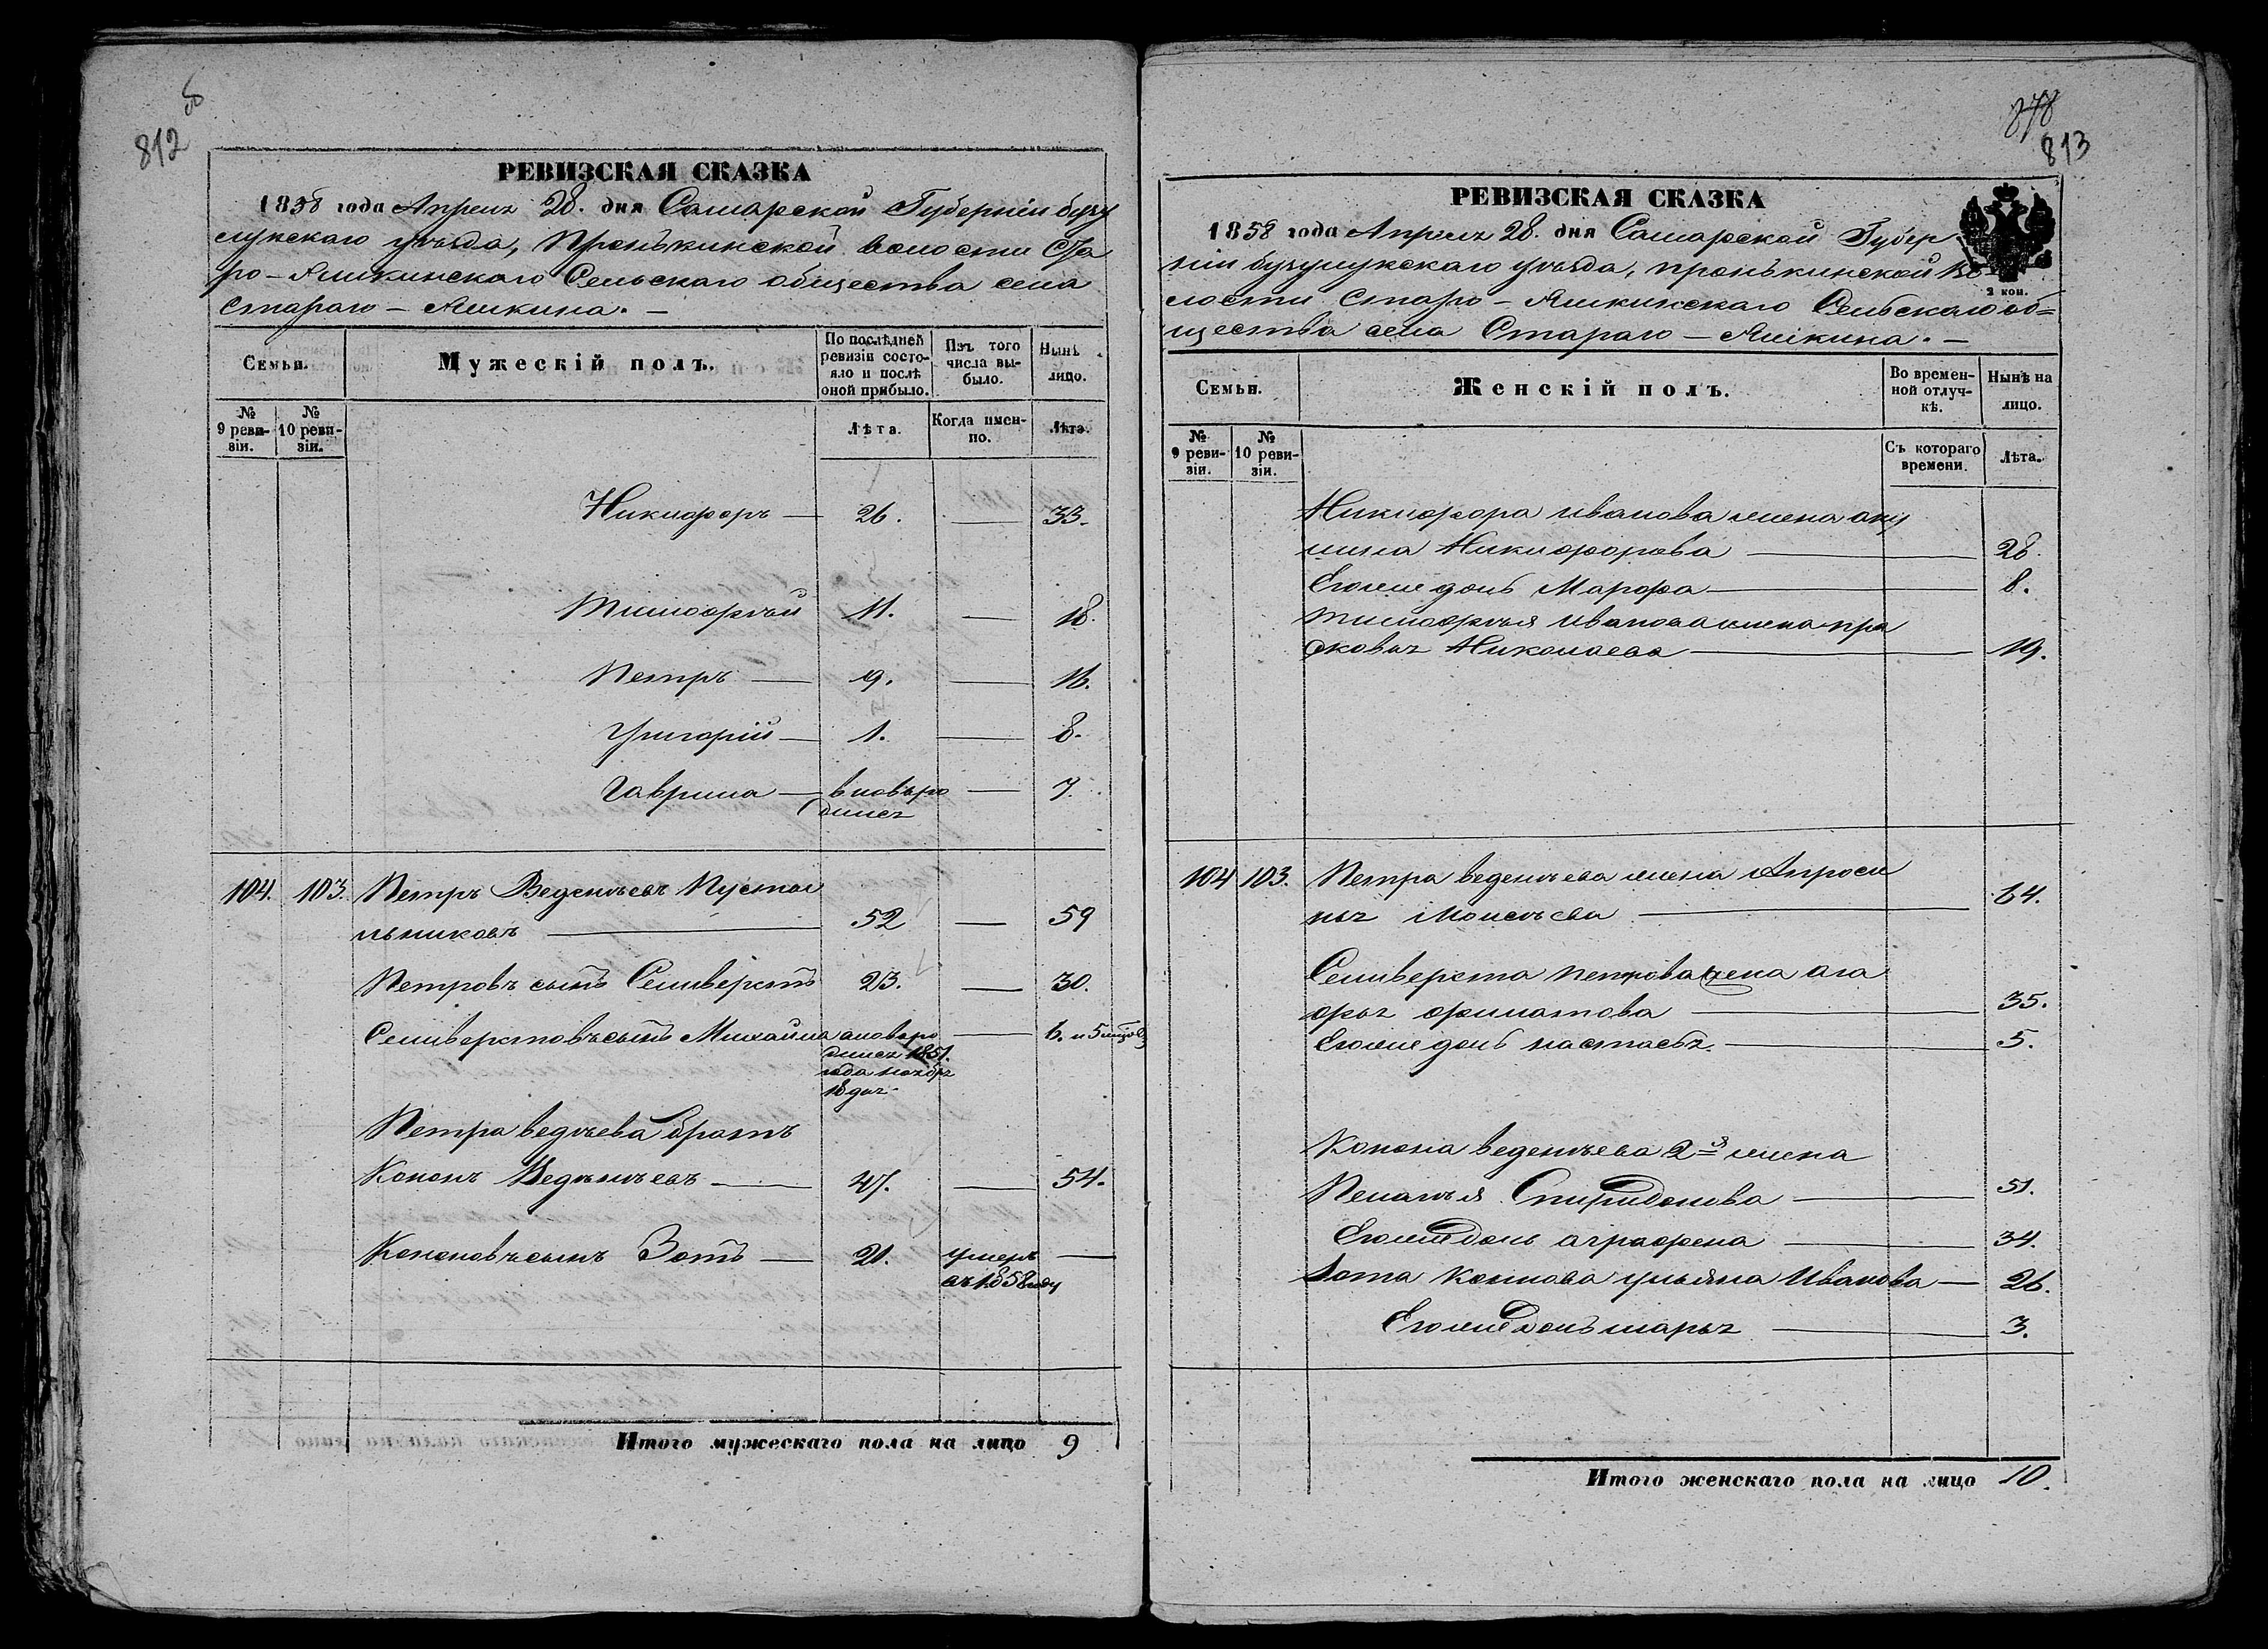 812
РЕВИЗСКАЯ СКАЗКА
1858 года Апреля 28. дня Самарской Губерніи бузу
лукскаго уѣзда, Пронькинской волости Ста
ро-Ашкинскаго Сельскаго общества села
Стараго-Ашкина.
Семьи.
Мужескій полъ.
По послѣдней ревизіи состояло и послѣ оной прибыло.
Изъ того числа выбыло.
Нынѣ лицо.
№ 9 ревизіи.
№ 10 ревизіи.
Лѣта.
Когда именно.
Лѣта.
Никифоръ — 26. — 33.
Тимофѣй 11. — 18.
Петръ — 9. — 16.
Григорій — 1. — 8.
Гаврила — вновьро — 7.
дился
104. 103. Петръ Веденѣевъ Пустал
никовъ — 52 — 59
Петровъ сынъ Селиверстъ 23. — 30.
Селиверстовъ сынъ Михайла вновьро — 6. и 5 мцов
дился 1851.
года ноябр
18 дня
Петра ведѣева братъ
Кононъ Ведѣнѣевъ — 47. — 54.
Кононовъ сынъ Зотъ — 21. умеръ —
въ 1858 году
Итого мужескаго пола на лицо 9
878
813
РЕВИЗСКАЯ СКАЗКА
2 коп.
1858 года Апреля 28. дня Самарской Губер
ніи бузулукскаго уѣзда, пронькинской во
лости Старо-Ашкинскаго Сельскаго об=
щества села Стараго-Ашкина.
Семьи.
Женскій полъ.
Во временной отлучкѣ.
Нынѣ на лицо.
№ 9 ревизіи.
№ 10 ревизіи.
Съ котораго времени.
Лѣта.
Никифора иванова жена аку
лина Никифорова — 28.
Еголие дочь Марфа — 8.
Тимофѣя Иванова жена пра
сковья Николаева — 19.
104 103. Петра веденѣева жена Апроси
нья Моисѣева — 64.
Селиверста петрова жена ага
фья филатова — 35.
Еголие дочь настасья — 5.
Конона веденѣева 2я жена
Пелагѣя Спиридонова — 51.
Еголие дочь аграфена — 34.
ЗотаКоннова ульяна Иванова — 26.
Еголие дочь марья — 3.
Итого женскаго пола на лицо 10.